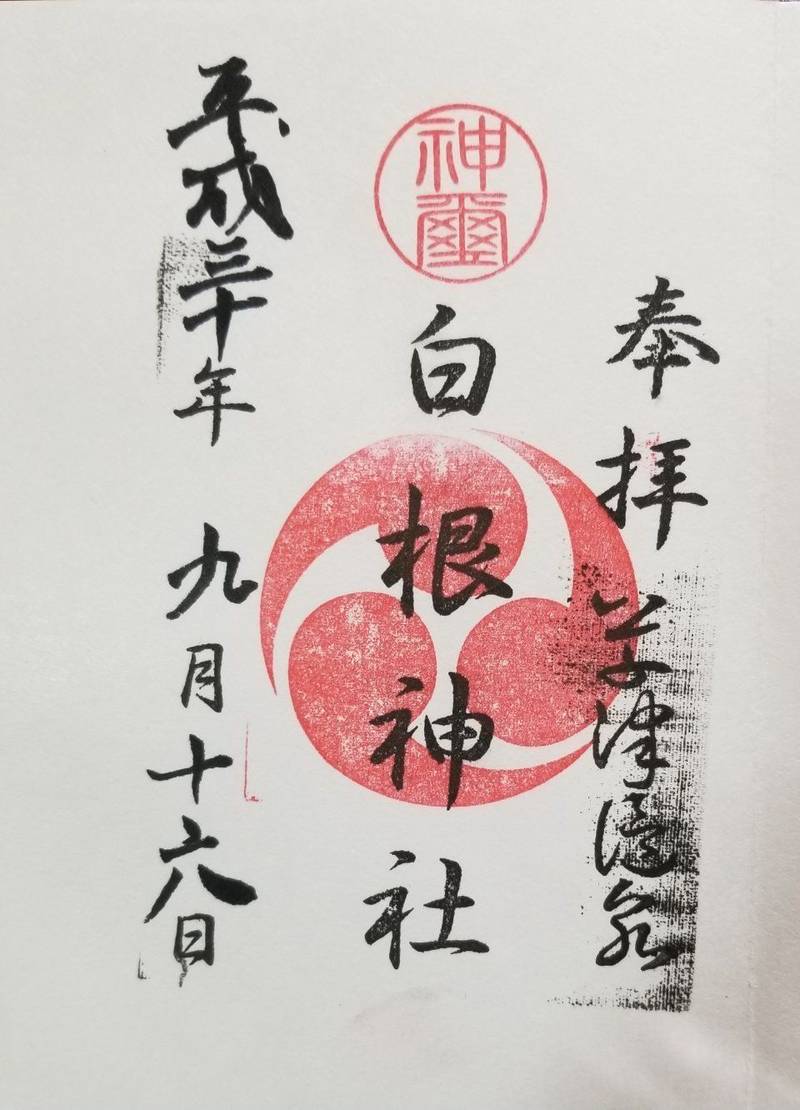 奉拝
草津温泉
神璽
白根神社
平成三十年 九月十六日